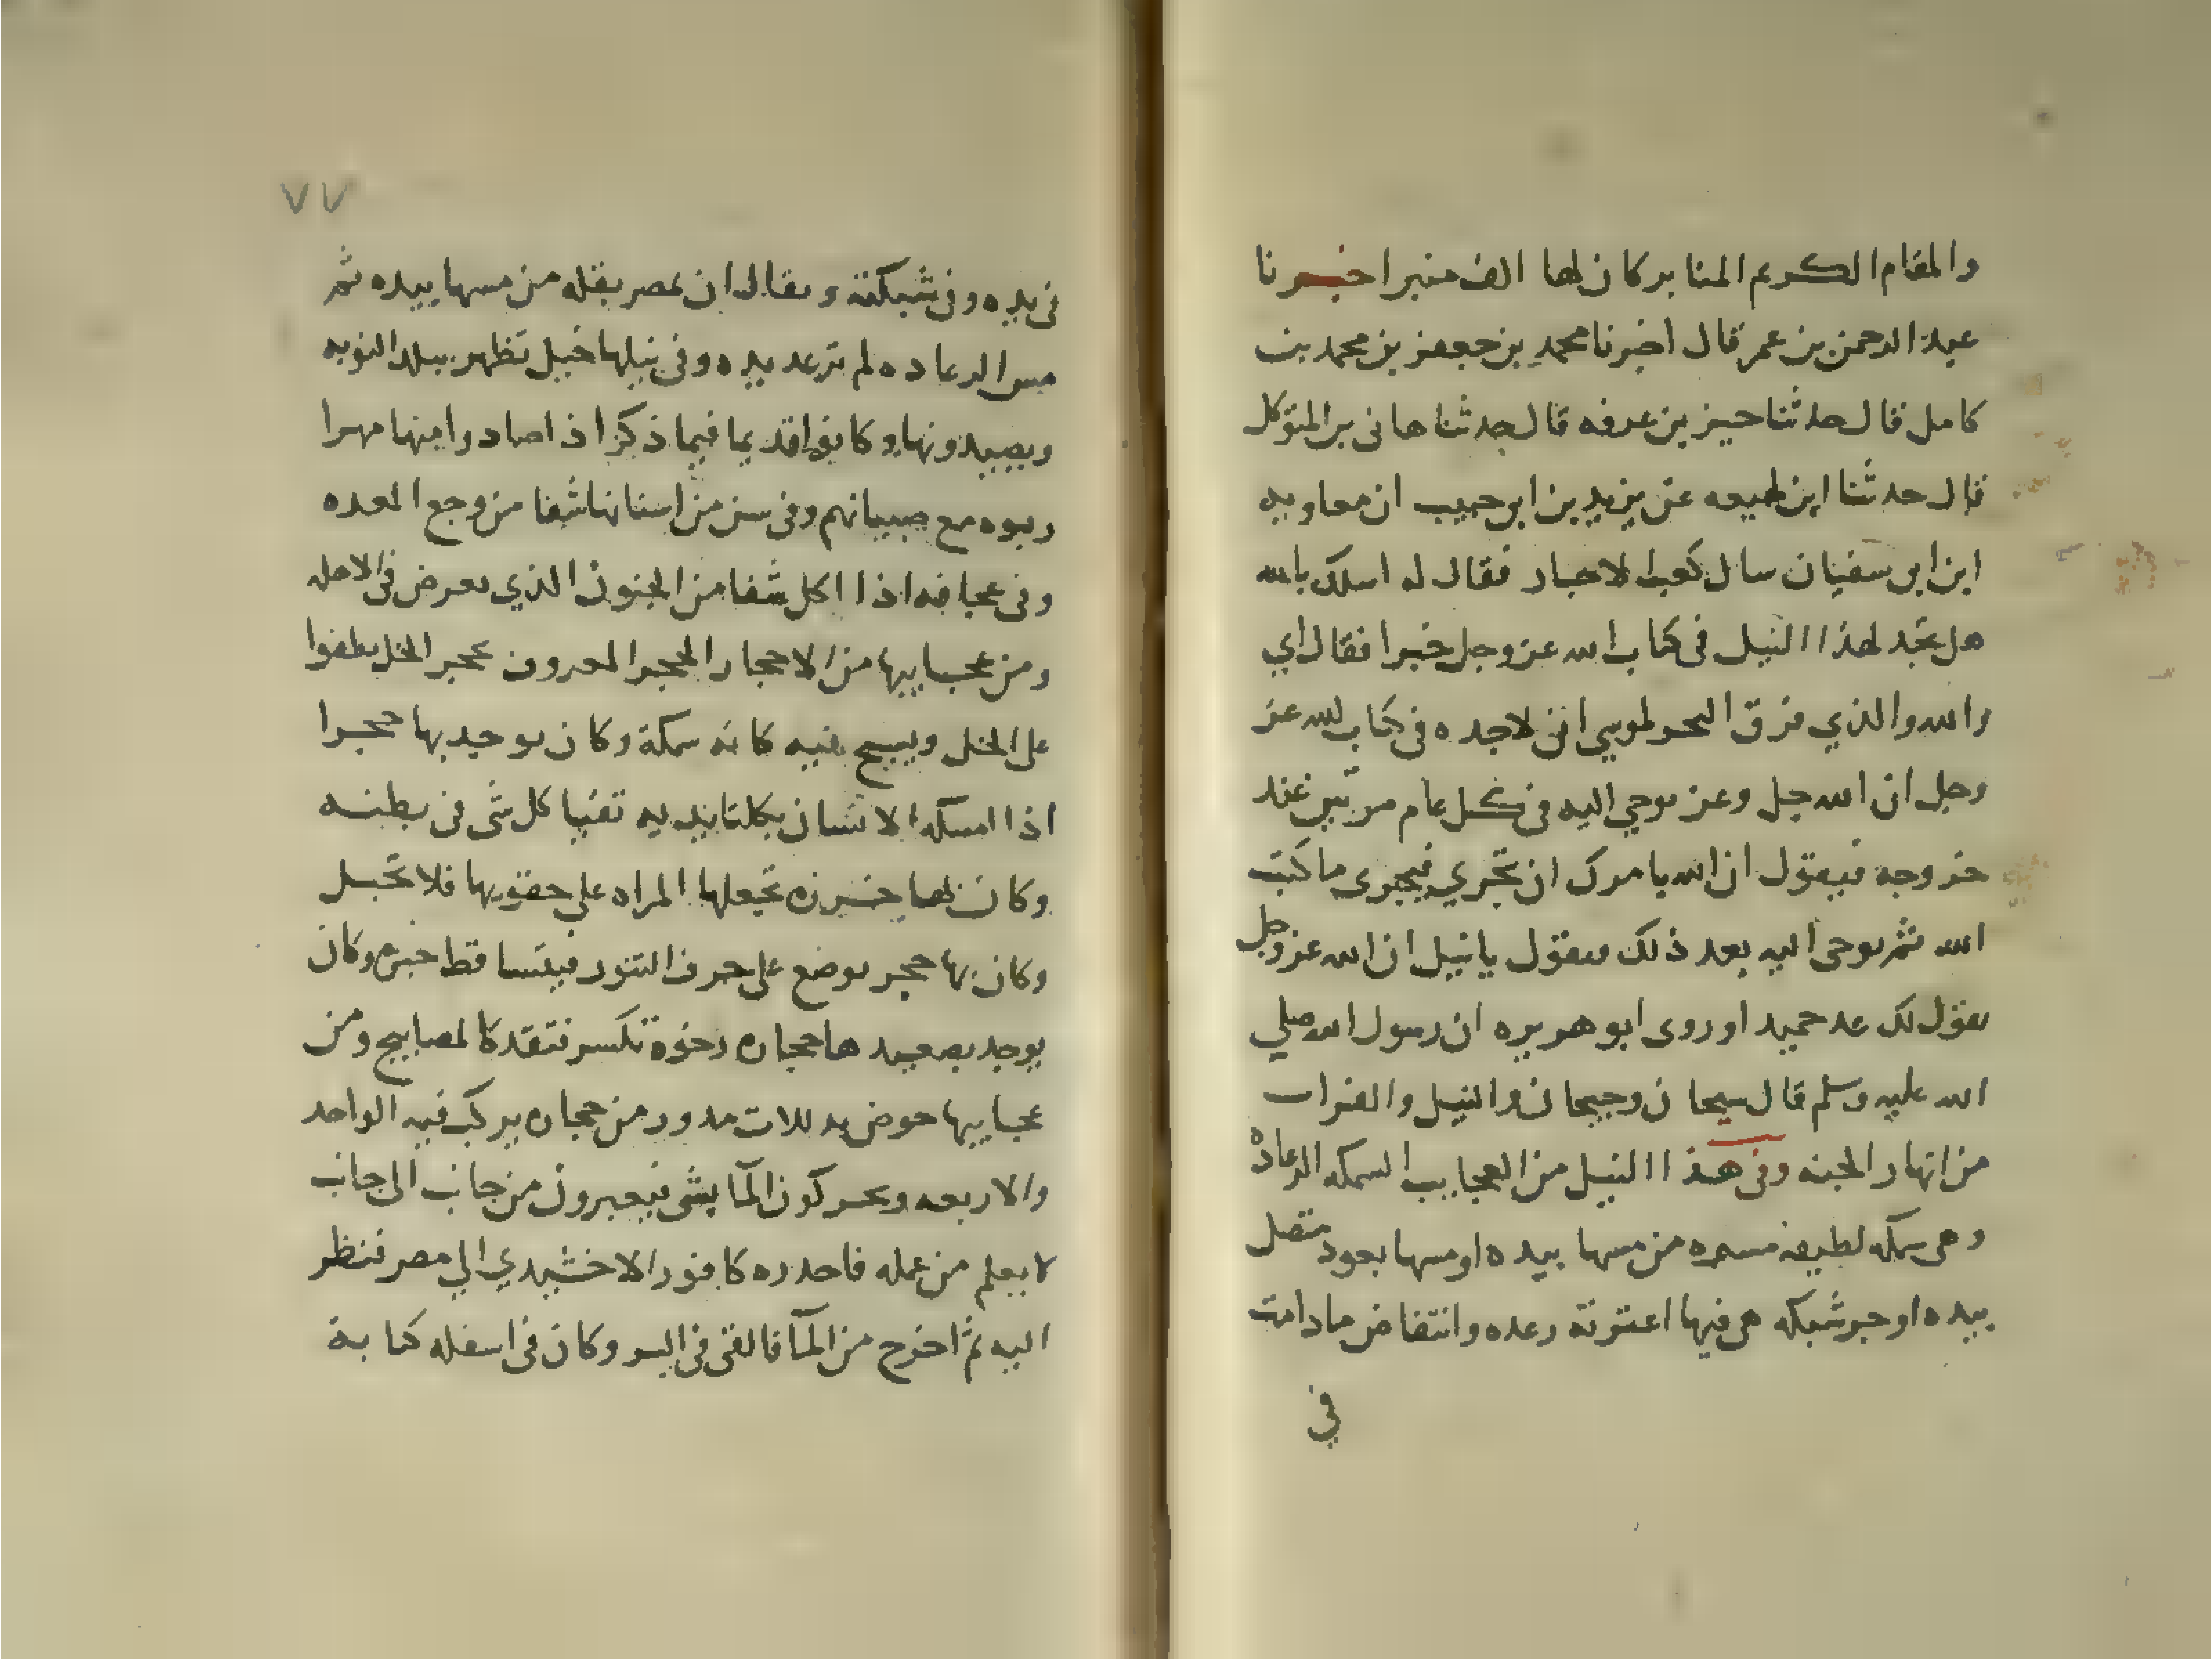 والمقام الكريم المنابر كان لها الف منبر اخبرنا
عبد الرحمن بن عمر قال اخبرنا محمد بن جعفر بن محمد بن
كامل قال حدثنا بن عرفه قال حدثنا هانى بن المتوكل
قال حدثنا ابن لهيعه عن يزيد بن ابى حبيب ان معاويه
ابن ابى سفيان سال كعب الاحبار فقال له اسلك بالله
هل تجد لهذا النيل فى كتاب الله عز وجل خبرا فقال اي
والله والذي فرق البحر لموسي انى لاجده فى كتاب الله عز
وجل ان الله جل وعز يوحي اليه فى كل عام مرتين عند
خروجه فيقول ان الله يامرك ان تجري فيجرى ما كتب
الله ثم يوحى اليه بعد ذلك فيقول يا نيل ان الله عز وجل
يقول لك عد حميدا وروى ابو هريره ان رسول الله صلي
الله عليه وسلم قال سيحان وجيحان والنيل والفرات
من انهار الجنه وفى هذا النيل من العجايب السمكه الرعاده
وهى سمكه لطيفه من مسها بيده او مسها بعود متصل
بيده او جر شبكه هى فيها اعترته رعده وانتفاض ما دامت
فى
٧٧
فى يده وفى شبكته ويقال ان بمصر بقله من مسها بيده ثم
مس الرعاده لم ترعد يده وفى نيلها خيل تظهر ببلد النوبه
ويصيدونها وكانوا قديما فيما ذكر اذا صادوا منها مهرا
ربوه مع صبيانهم وفى سن من اسنانها شفا من وجع المعده
وفى اذا اكل شفا من الجنون الذي يعرض فى الاهله
ومن عجايبها من الاحجار الحجر المعروف بحجر الخل يطفوا
على الخل ويسبح فيه كانه سمكة وكان يوجد بها حجرا
اذا امسكه الانسان بكلتا يديه تقيا كل شى فى بطنه
وكان لها خرزه تجعلها المراه علي حقويها فلا تحبل
وكان بها حجر يوضع على حرف التنور فيتساقط خبزه وكان
يوجد بصعيدها حجاره رخوة تكسر فتتقد كالمصابيح ومن
عجايبها حوض مدور من حجاره يركب فيه الواحد
والاربعه ويحركون المآ بشى فيعبرون من جانب الى جانب
لا يعلم من عمله فاحدره كافور الاخشيدي الي مصر فنظر
اليه ثم اخرج من المآ فالقى فى البر وكان فى اسفله كتابة